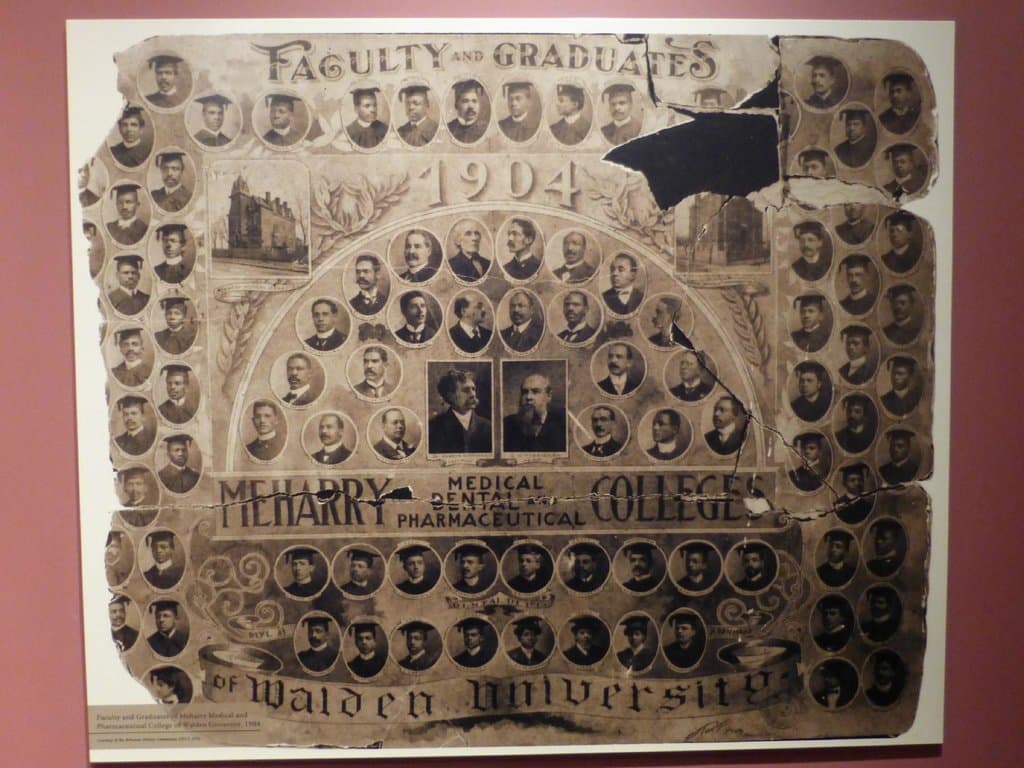 FACULTY AND GRADUATES
1904
MEHARRY MEDICAL DENTAL AND PHARMACEUTICAL COLLEGES
DENTAL DEPT.
DEPT. OF
OF Walden University.
Faculty and Graduates of Meharry Medical and
Pharmaceutical College of Walden University, 1904
Courtesy of the